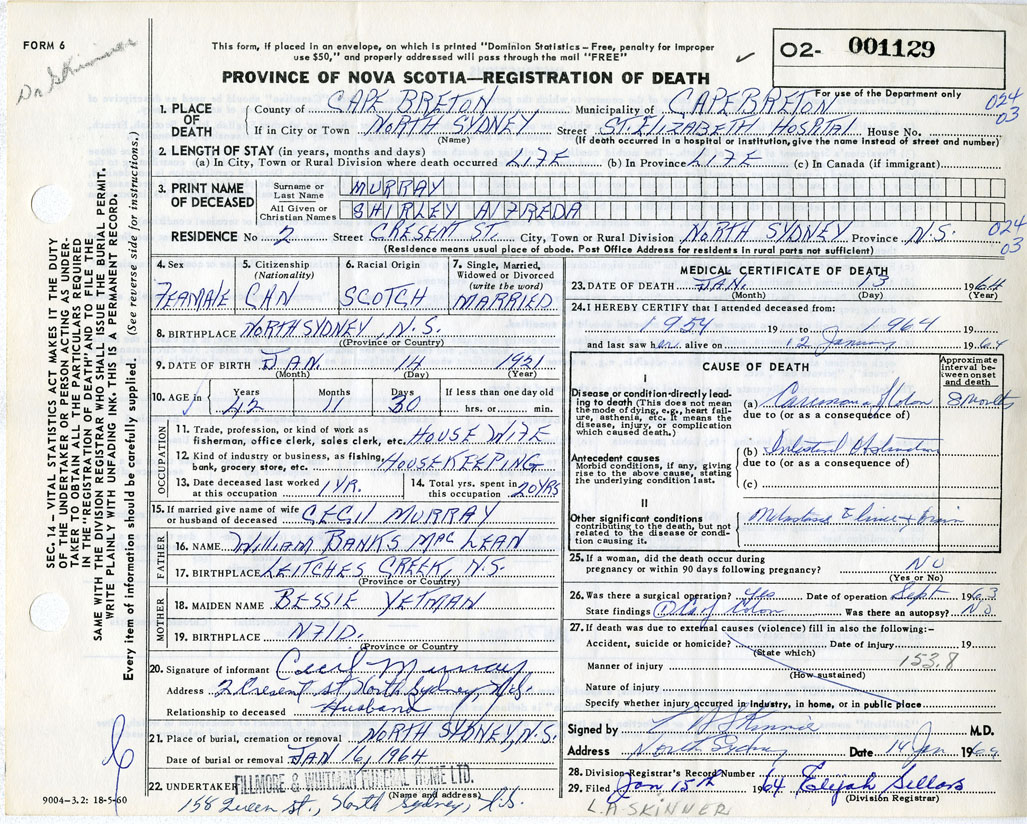 FORM 6
Dr Skinner
This form, if placed in an envelope, on which is printed "Dominion Statistics – Free, penalty for improper
use $50," and properly addressed will pass through the mail "FREE"
PROVINCE OF NOVA SCOTIA—REGISTRATION OF DEATH
02- 001129
For use of the Department only
024
03
1. PLACE OF DEATH
County of CAPE BRETON Municipality of CAPE BRETON
If in City or Town NORTH SYDNEY Street ST. ELIZABETH HOSPITAL House No.
(Name) (If death occurred in a hospital or institution, give the name instead of street and number)
2. LENGTH OF STAY (in years, months and days)
(a) In City, Town or Rural Division where death occurred LIFE (b) In Province LIFE (c) In Canada (if immigrant)
3. PRINT NAME OF DECEASED
Surname or Last Name MURRAY
All Given or Christian Names SHIRLEY ALFREDA
RESIDENCE No 2 Street CRESENT ST. City, Town or Rural Division NORTH SYDNEY Province N.S.
024
03
(Residence means usual place of abode. Post Office Address for residents in rural parts not sufficient)
4. Sex FEMALE
5. Citizenship (Nationality) CAN
6. Racial Origin SCOTCH
7. Single, Married, Widowed or Divorced (write the word) MARRIED
8. BIRTHPLACE NORTH SYDNEY, N.S.
(Province or Country)
9. DATE OF BIRTH JAN. 14 1921
(Month) (Day) (Year)
10. AGE in Years 42 Months 11 Days 30 If less than one day old hrs. or min.
OCCUPATION
11. Trade, profession, or kind of work as fisherman, office clerk, sales clerk, etc. HOUSE WIFE
12. Kind of industry or business, as fishing, bank, grocery store, etc. HOUSEKEEPING
13. Date deceased last worked at this occupation 1 YR. 14. Total yrs. spent in this occupation 20 YRS
15. If married give name of wife or husband of deceased CECIL MURRAY
FATHER
16. NAME WILLIAM BANKS MAC LEAN
17. BIRTHPLACE LEITCHES CREEK, N.S.
(Province or Country)
MOTHER
18. MAIDEN NAME BESSIE YETMAN
19. BIRTHPLACE NFLD.
(Province or Country
20. Signature of informant Cecil Murray
Address 2 Cresent st, North Sydney, N.S.
Relationship to deceased Husband
21. Place of burial, cremation or removal NORTH SYDNEY, N.S.
Date of burial or removal JAN 16, 1964
22. UNDERTAKER FILLMORE & WHITMAN FUNERAL HOME LTD.
(Name and address)
158 Queen st., North Sydney, N.S.
9004-3.2: 18-5-60
MEDICAL CERTIFICATE OF DEATH
23. DATE OF DEATH JAN. 13 1964
(Month) (Day) (Year)
24. I HEREBY CERTIFY that I attended deceased from:
1954 19 to 1964 19
and last saw her alive on 12 January 1964
CAUSE OF DEATH
Approximate interval between onset and death
I
Disease or condition directly leading to death (This does not mean the mode of dying, e.g., heart failure, asthenia, etc. It means the disease, injury, or complication which caused death.)
(a) Carcinoma of Colon 8 months
due to (or as a consequence of)
Antecedent causes
Morbid conditions, if any, giving rise to the above cause, stating the underlying condition last.
(b) Intestinal Obstruction
due to (or as a consequence of)
(c)
II
Other significant conditions contributing to the death, but not related to the disease or condition causing it.
25. If a woman, did the death occur during pregnancy or within 90 days following pregnancy? NO
(Yes or No)
26. Was there a surgical operation? Yes Date of operation Sept 1963
State findings Ca of Colon Was there an autopsy? NO
27. If death was due to external causes (violence) fill in also the following:–
Accident, suicide or homicide? Date of injury 19
(State which)
153.8
Manner of injury
(How sustained)
Nature of injury
Specify whether injury occurred in industry, in home, or in public place
Signed by L A Skinner M.D.
Address North Sydney Date 14 Jan 1964
28. Division Registrar's Record Number
29. Filed Jan 15th 1964 Elijah Sellars
(Division Registrar)
L.A SKINNER
SEC. 14 – VITAL STATISTICS ACT MAKES IT THE DUTY
OF THE UNDERTAKER OR PERSON ACTING AS UNDER-
TAKER TO OBTAIN ALL THE PARTICULARS REQUIRED
IN THE "REGISTRATION OF DEATH" AND TO FILE THE
SAME WITH THE DIVISION REGISTRAR WHO SHALL ISSUE THE BURIAL PERMIT.
WRITE PLAINLY WITH UNFADING INK. THIS IS A PERMANENT RECORD.
Every item of information should be carefully supplied. (See reverse side for instructions.)